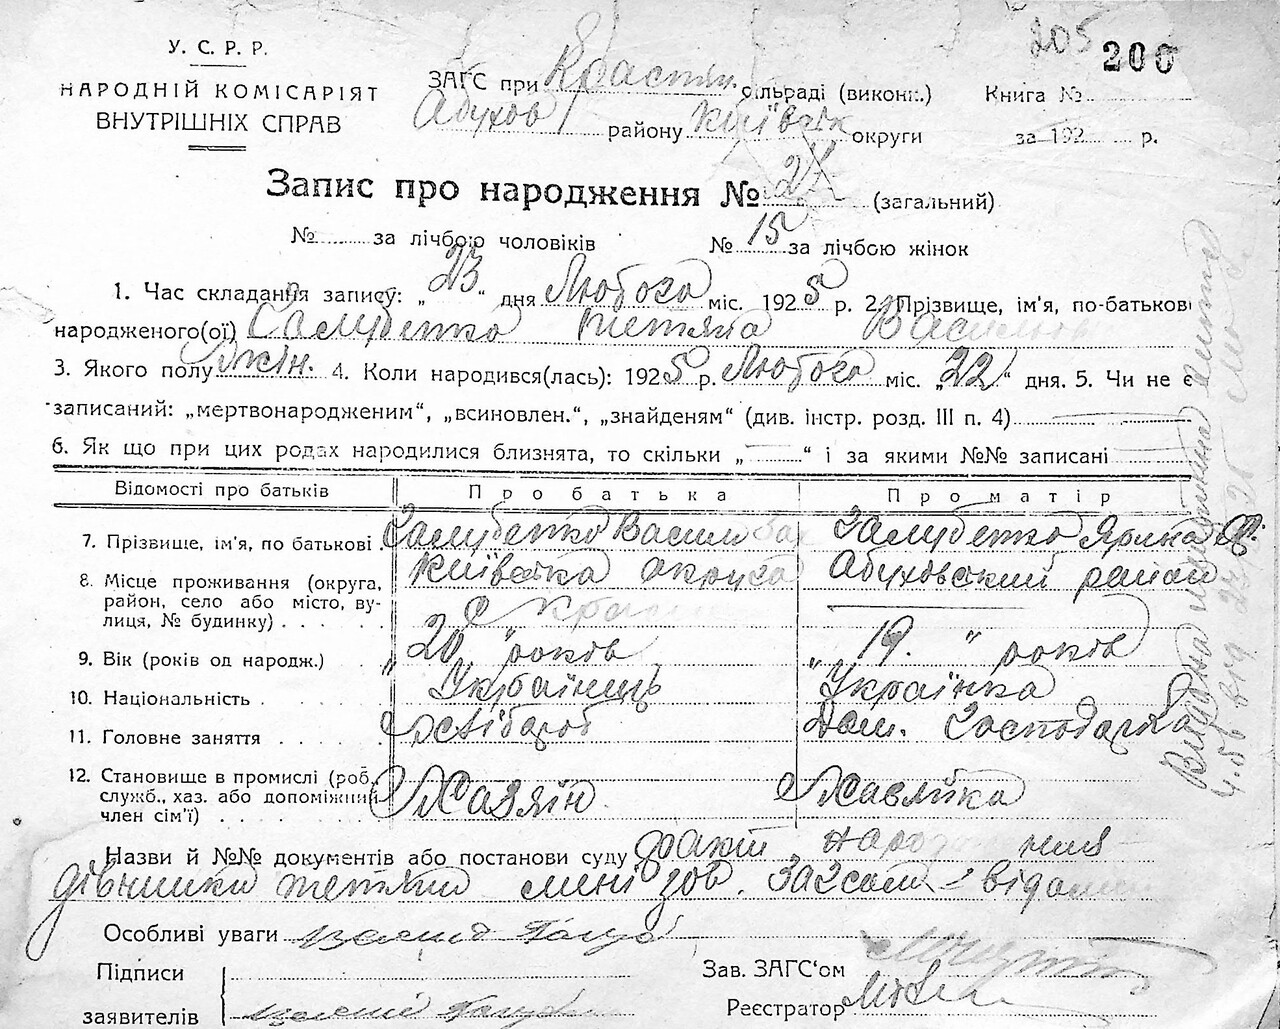 205 200
У. С. Р. Р.
НАРОДНІЙ КОМІСАРІЯТ
ВНУТРІШНІХ СПРАВ
ЗАГС при Крастян. сільраді (виконк.) Книга №
Абухов району Київськ округи за 192 р.
Запис про народження № 24 (загальний)
№ за лічбою чоловіків № 15 за лічбою жінок
1. Час складання запису: „23" дня Любого міс. 1925 р. 2. Прізвище, ім'я, по-батькові
народженого(ої) Тетяна Васильов
3. Якого полу жін. 4. Коли народився(лась): 1925 р. Любого міс. „22" дня. 5. Чи не є
записаний: „мертвонародженим", „всиновлен.", „знайденям" (див. інстр. розд. III п. 4)
6. Як що при цих родах народилися близнята, то скільки „ " і за якими №№ записані
Відомості про батьків Про батька Про матір
7. Прізвище, ім'я, по батькові Василь
8. Місце проживання (округа, район, село або місто, вулиця, № будинку) Київська округа Абуховський район
9. Вік (років од народж.) „20" років „19." років
10. Національність Українець Українка
11. Головне заняття Хлібороб Дом. Господарка
12. Становище в промислі (роб., служб., хаз. або допоміжний член сім'ї) Хазяїн Хазяйка
Назви й №№ документів або постанови суду факт народження
дівчинки Тетяни мені зав. Загсом – відомий
Особливі уваги
Підписи Зав. ЗАГС'ом
заявителів Реєстратор